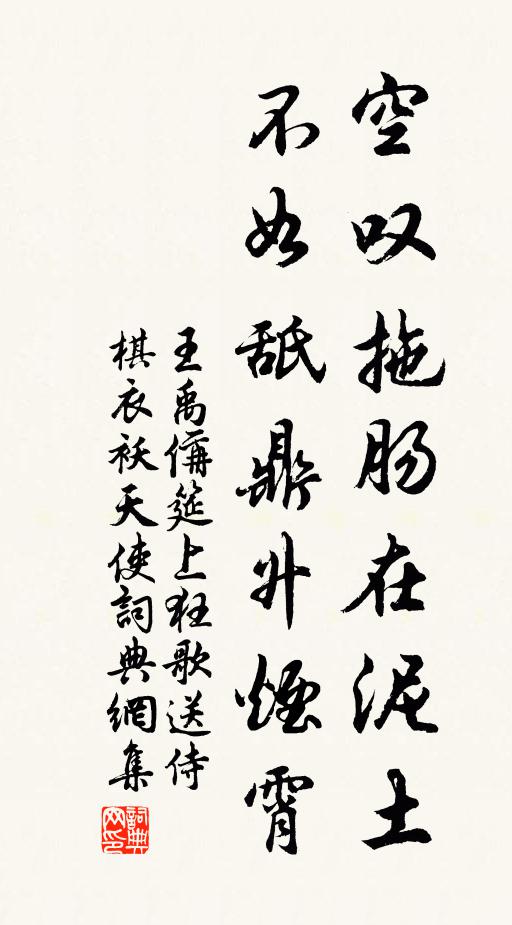 空叹拖肠在泥土
不如舐鼎升煙霄
王禹偁筵上狂歌送侍
棋衣袄天使詞典網集
詞典
网印